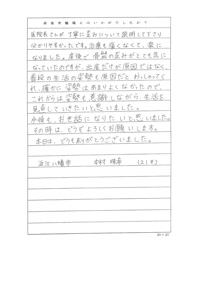 院長さんが丁寧に歪みについて説明して下さり
分かりやすかったです。治療も痛くなくて、楽に
なりました。産後で骨盤の歪みがとても気に
なっていたのですが、出産だけが原因ではなく
普段の生活の姿勢も原因だとおっしゃってく
れ、確かに姿勢はあまりよくなかったので、
これからは姿勢も意識しながら、生活を
見直していきたいと思いました。
今後も、お世話になりたいと思いました。
その時は、どうぞよろしくお願いします。
本日は、どうもありがとうございました。
近江八幡市